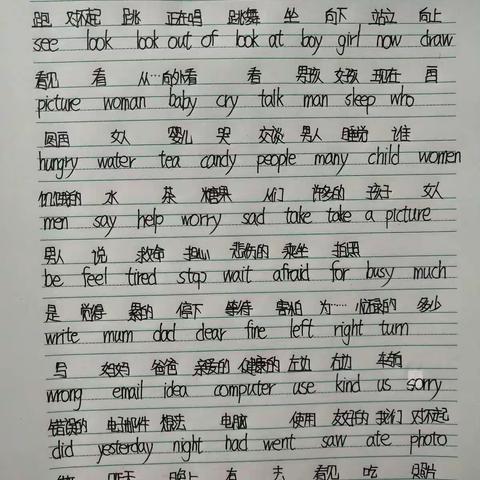 跑 对不起 跳 正在唱 跳舞 坐 向下 站立 向上
see look look out of look at boy girl now draw
看见 看 从…向外看 看 男孩 女孩 现在 画
picture woman baby cry talk man sleep who
图画 女人 婴儿 哭 交谈 男人 睡觉 谁
hungry water tea candy people many child women
饥饿的 水 茶 糖果 人们 许多的 孩子 女人
men say help worry sad take take a picture
男人 说 救命 担心 悲伤的 乘坐 拍照
be feel tired stop wait afraid for busy much
是 觉得 累的 停下 等待 害怕 为…… 忙碌的 多少
write mum dad dear fine left right turn
写 妈妈 爸爸 亲爱的 健康的 左边 右边
wrong email idea computer use kind us sorry
错误的 电子邮件 想法 电脑 使用 友好的 我们 对不起
did yesterday night had went saw ate photo
昨天 晚上 有 去 看见 吃 照片